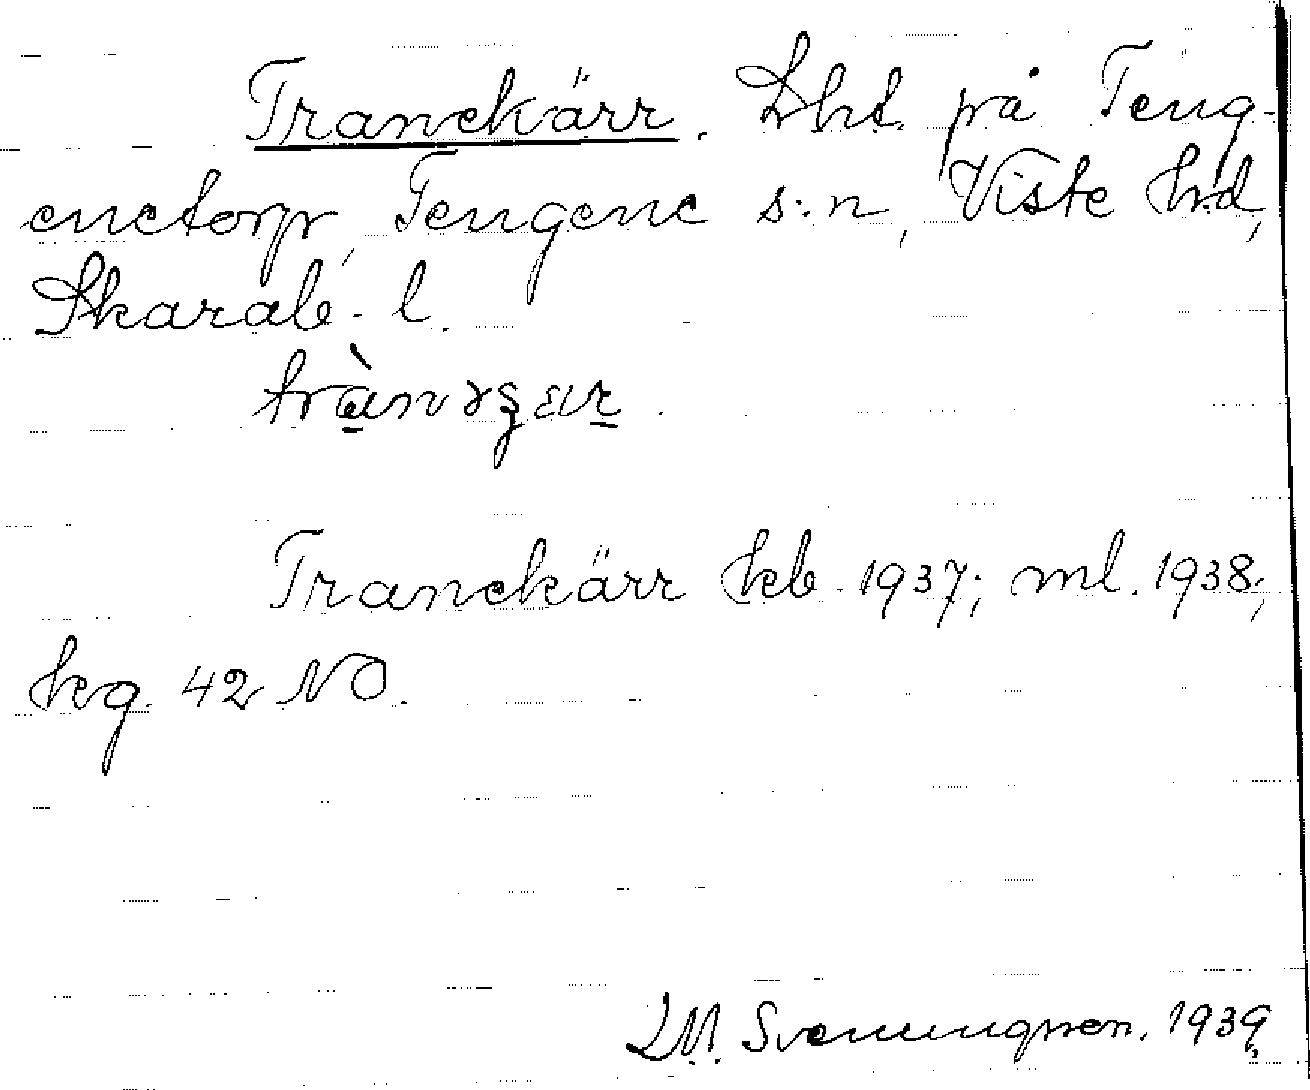 Tranekärr. Lht. på Teng-
enetorp, Tengene s:n, Viste hd,
Skarab. l.
Tranekärr kb. 1937; ml. 1938;
kg. 42 NO.
M. Svenungsson. 1939